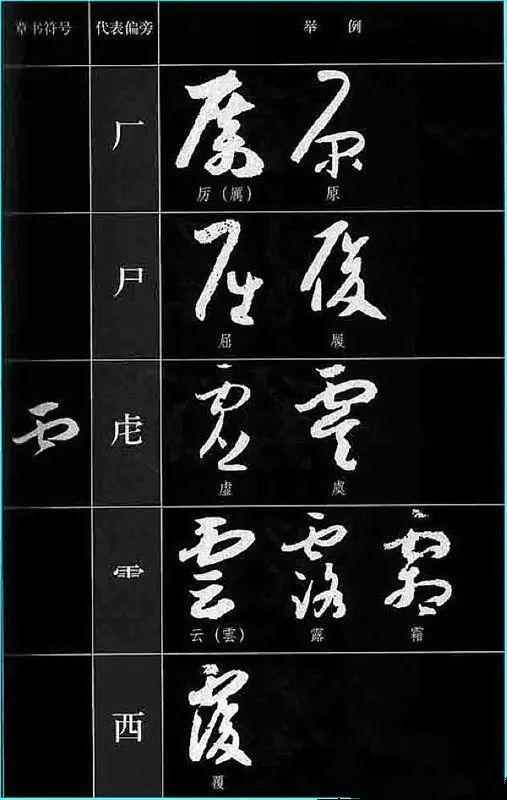 草书符号 代表偏旁 举 例
厂
厉（厲） 原
尸
屈 履
虍
虚 虞
⻗
云（雲） 露 霜
西
覆